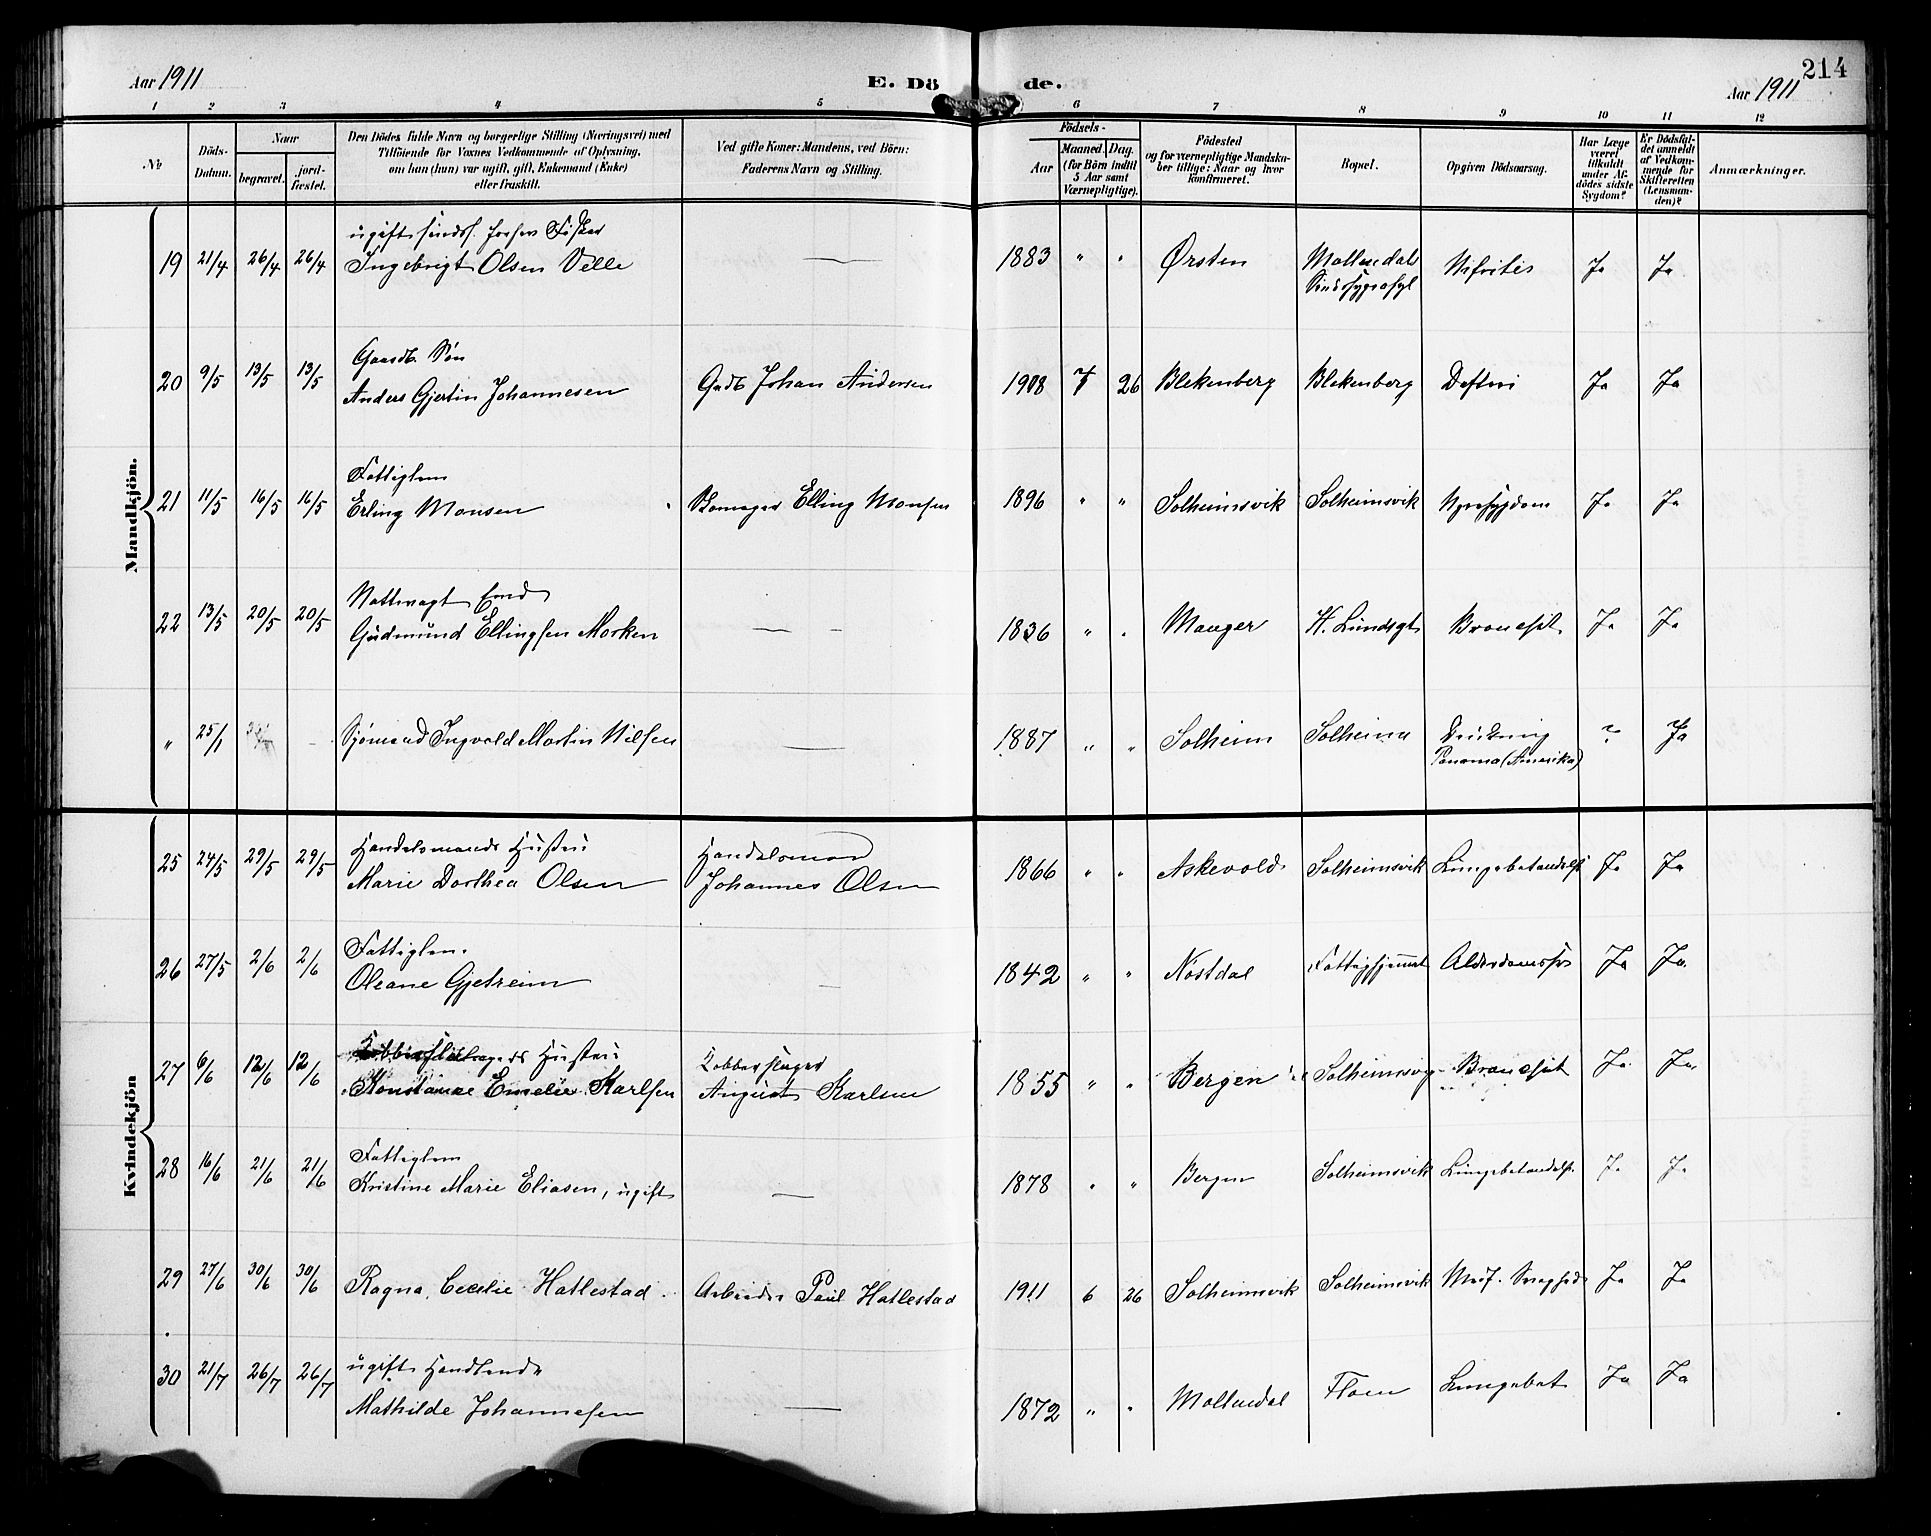 Aar 1911
E. Dö de.
214
Aar 1911
1 2 3 4 5 6 7 8 9 10 11 12
№
Döds-Datum.
Naar
begravet.
jord-fæstet.
Den Dödes fulde Navn og borgerlige Stilling (Næringsvei) med
Tilföiende for Voxnes Vedkommende af Oplysning,
om han (hun) var ugift, gift, Enkemand (Enke)
eller fraskilt.
Ved gifte Koner: Mandens, ved Börn:
Faderens Navn og Stilling.
Födsels-
Aar
Maaned. Dag.
(for Börn indtil
5 Aar samt
Værnepligtige).
Födested
og for værnepligtige Mandska-
ber tillige: Naar og hvor
konfirmeret.
Bopæl.
Opgiven Dödsaarsag.
Har Læge
været
tilkaldt
under Af-
dödes sidste
Sygdom?
Er Dödsfal-
det anmeldt
af Vedkom-
mende for
Skifteretten
(Lensman-
den)?
Anmærkninger.
Mandkjön.
ugift Fisker
19 21/4 26/4 26/4 Ingebrigt Olsen Velle — 1883 " " Ørsten Møllendals Nefrites Ja Ja
Sindssygeasyl
Gaardb. Søn
20 9/5 13/5 13/5 Anders Gjertin Johannesen Gadb Johan Andersen 1908 7 26 Blekenberg Blekenberg Difteri Ja Ja
Fattiglem
21 11/5 16/5 16/5 Erling Monsen Elling Monsen 1896 " " Solheimsvik Solheimsvik Nyresygdom Ja Ja
Nattvagt Emd
22 13/5 20/5 20/5 Gudmund Ellingsen Morken — 1836 " " Manger H. Lundsgt Bronchit Ja Ja
" 25/1 – Sjømand Ingvald Martin Nilsen — 1887 " " Solheim Solheim Drukning ? Ja
Panama (Amerika)
Kvindekjön
Handelsmands Hustru Handelsman
25 24/5 29/5 29/5 Marie Dorthea Olsen Johannes Olsen 1866 " " Askevold Solheimsvik Lungebetændelse Ja Ja
Fattiglem.
26 27/5 2/6 2/6 Oleane Gjetreim — 1842 " " Nøstdal Fattighjemmet Ja Ja.
Hustru Kobberslager
27 6/6 12/6 12/6 Konstanse Emelie Karlsen August Karlsen 1855 " " Bergen Solheimsvig Bronchit Ja. Ja.
Fattiglem
28 16/6 21/6 21/6 Kristine Marie Eliasen, ugift — 1878 " " Bergen Solheimsvik Lungebetændelse Ja Ja
29 27/6 30/6 30/6 Ragna Cecilie Hatlestad. Arbeider Paul Hatlestad 1911 6 26 Solheimsvik Solheimsvik Medf. Svaghed Ja Ja
ugift Handlende
30 21/7 26/7 26/7 Mathilde Johannesen — 1872 " " Møllendal Floen Lungebet Ja Ja